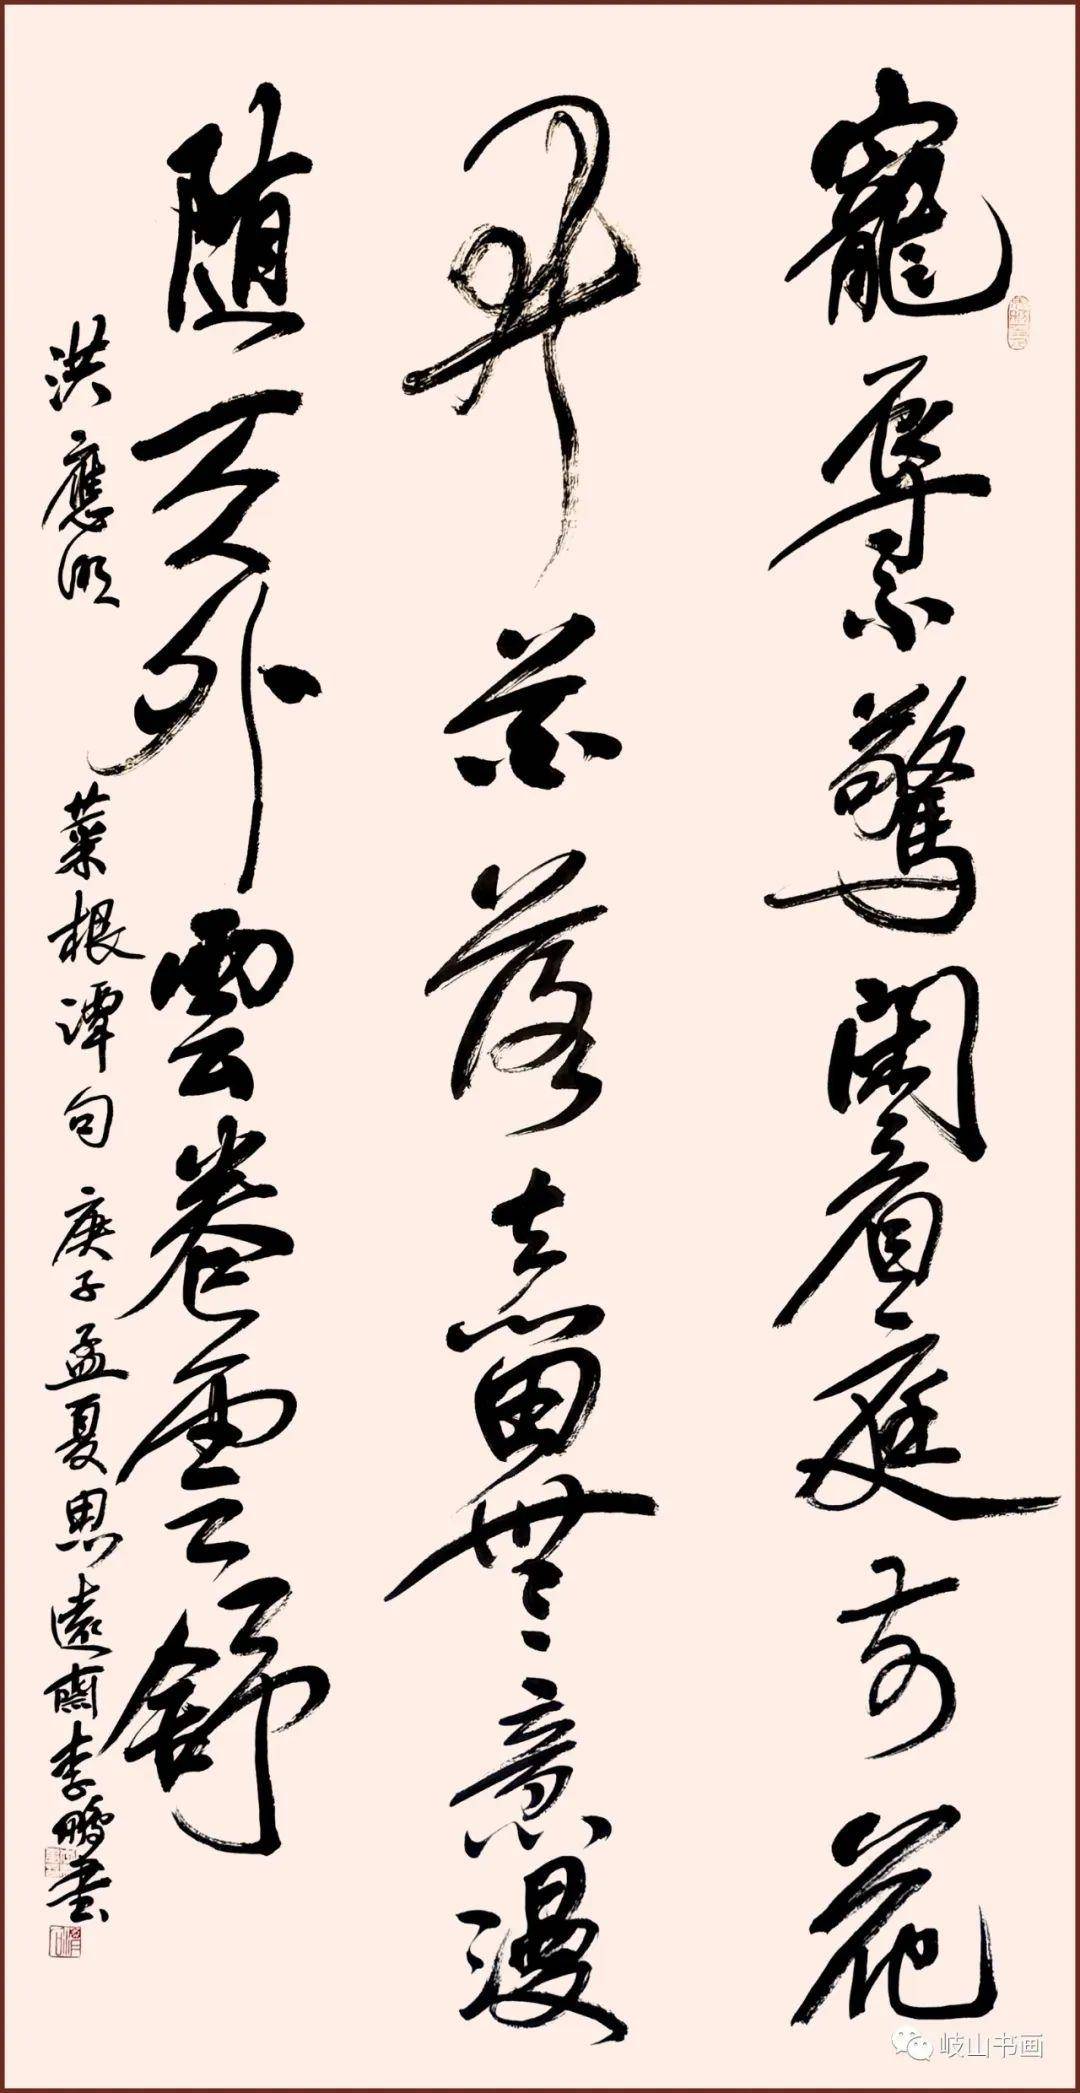 寵辱不驚閑看庭前花
開花落去留無意漫
随天外雲卷雲舒
洪應明菜根潭句庚子孟夏思遠齋李鵬書
岐山书画